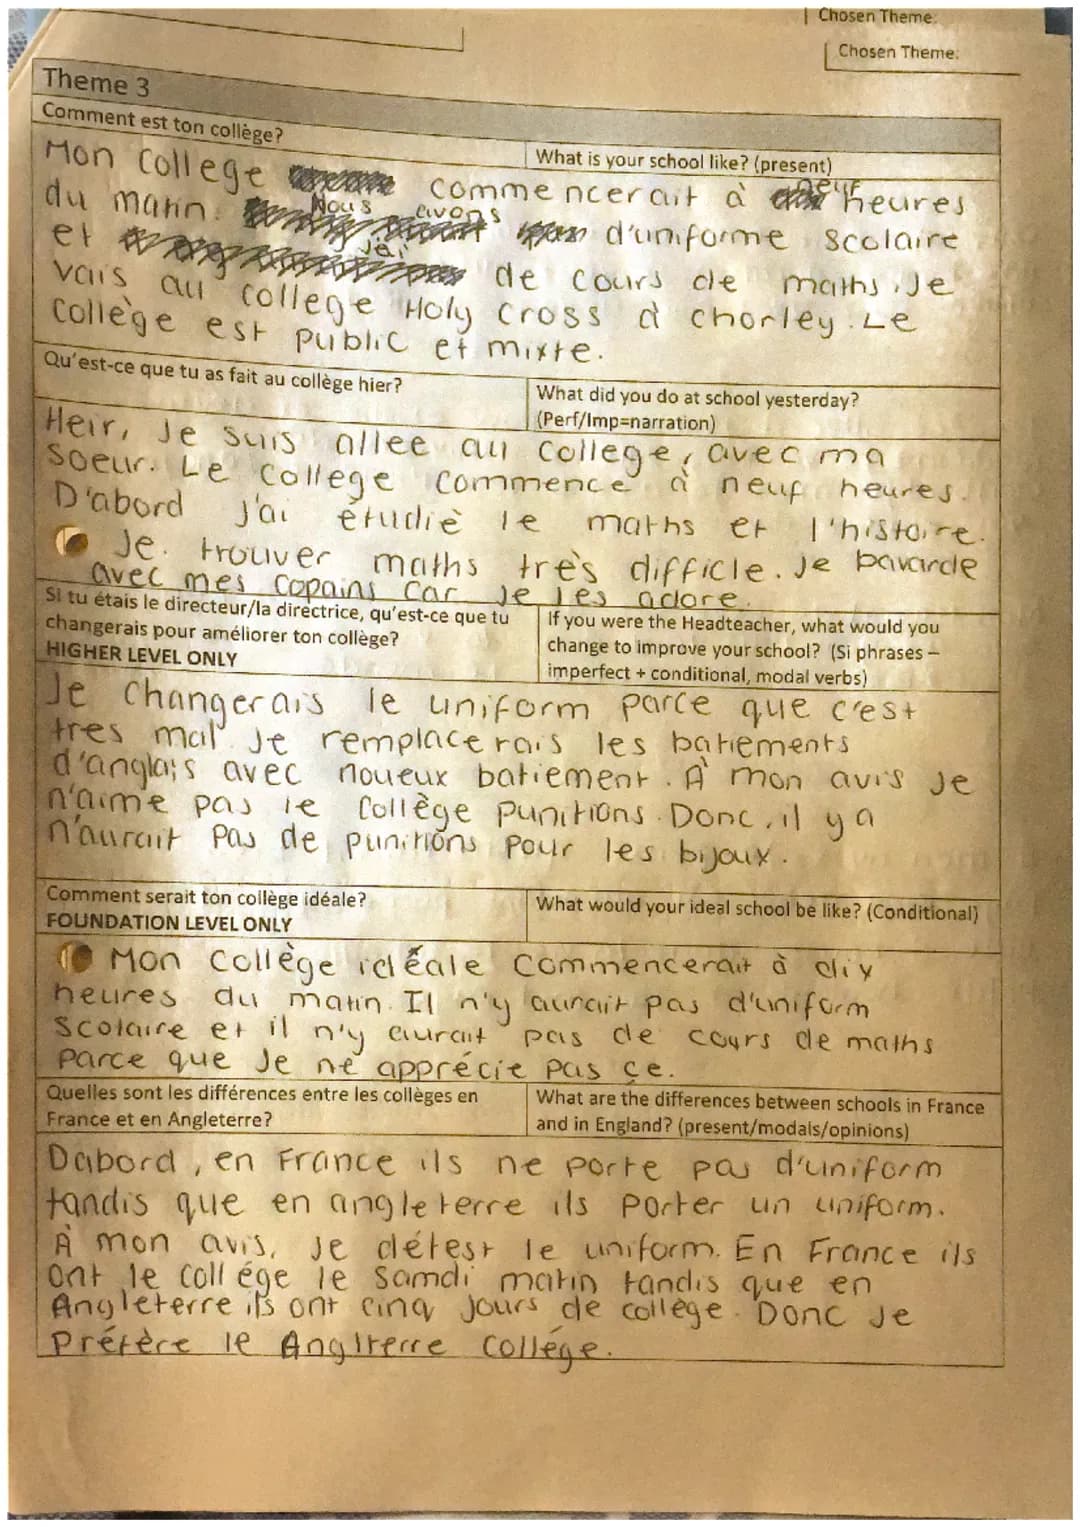 Chosen Theme:
Chosen Theme:
Theme 3
Comment est ton collège?
What is your school like? (present)
Mon College commencerait à neuf heures
du matin. Nous avons d'uniforme scolaire
et j'ai de cours de maths. Je
vais au college Holy Cross à chorley. Le
collège est public et mixte.
Qu'est-ce que tu as fait au collège hier?
What did you do at school yesterday?
(Perf/Imp=narration)
Heir, Je suis allee au college, avec ma
soeur. Le college commence à neuf heures.
D'abord j'ai étudiè le maths et l'histoire.
Je. trouver maths très difficle. Je bavarde
avec mes copains car Je les adore.
Si tu étais le directeur/la directrice, qu'est-ce que tu
changerais pour améliorer ton collège?
HIGHER LEVEL ONLY
If you were the Headteacher, what would you
change to improve your school? (Si phrases –
imperfect + conditional, modal verbs)
Je changerais le uniform parce que c'est
tres mal. Je remplacerais les batiements
d'anglais avec noueux batiement. À mon avis Je
n'aime pas le collège punitions. Donc, il ya
n'aurait pas de punitions pour les bijoux.
Comment serait ton collège idéale?
FOUNDATION LEVEL ONLY
What would your ideal school be like? (Conditional)
Mon collège idéale commencerait à dix
heures du matin. Il n'y aurait pas d'uniform
scolaire et il n'y aurait pas de cours de maths
parce que Je ne apprécie pas ce.
Quelles sont les différences entre les collèges en
France et en Angleterre?
What are the differences between schools in France
and in England? (present/modals/opinions)
Dabord, en France ils ne porte pas d'uniform
tandis que en angleterre ils porter un uniform.
À mon avis, Je détest le uniform. En France ils
ont le collége le samdi matin tandis que en
Angleterre ils ont cinq jours de collège. Donc Je
Préfère le Anglterre collége.